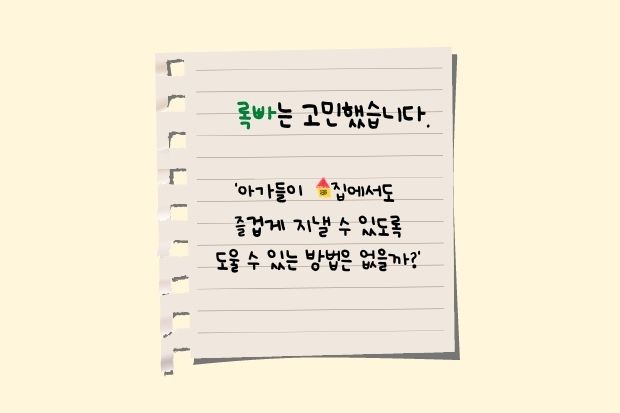 록빠는 고민했습니다.
'아가들이 집에서도
즐겁게 지낼 수 있도록
도울 수 있는 방법은 없을까?'